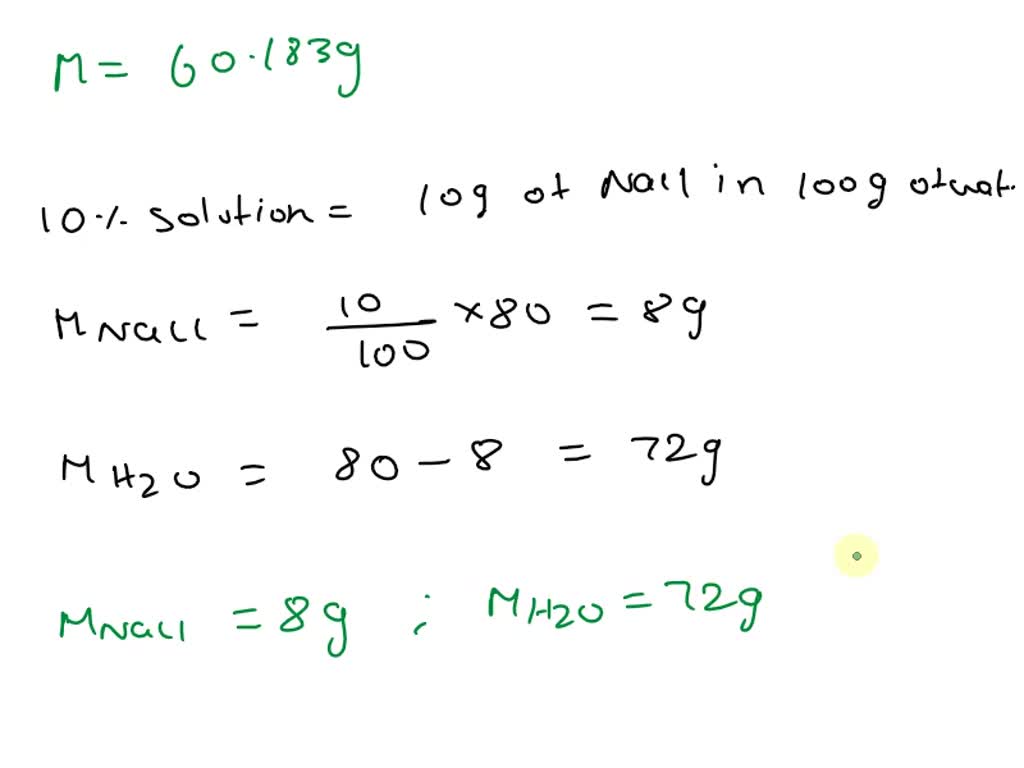 M = 60.183g
10% solution = 10g of NaCl in 100g of wat.
M NaCl = 10/100 × 80 = 8g
M H2O = 80 - 8 = 72g
M NaCl = 8g ; M H2O = 72g